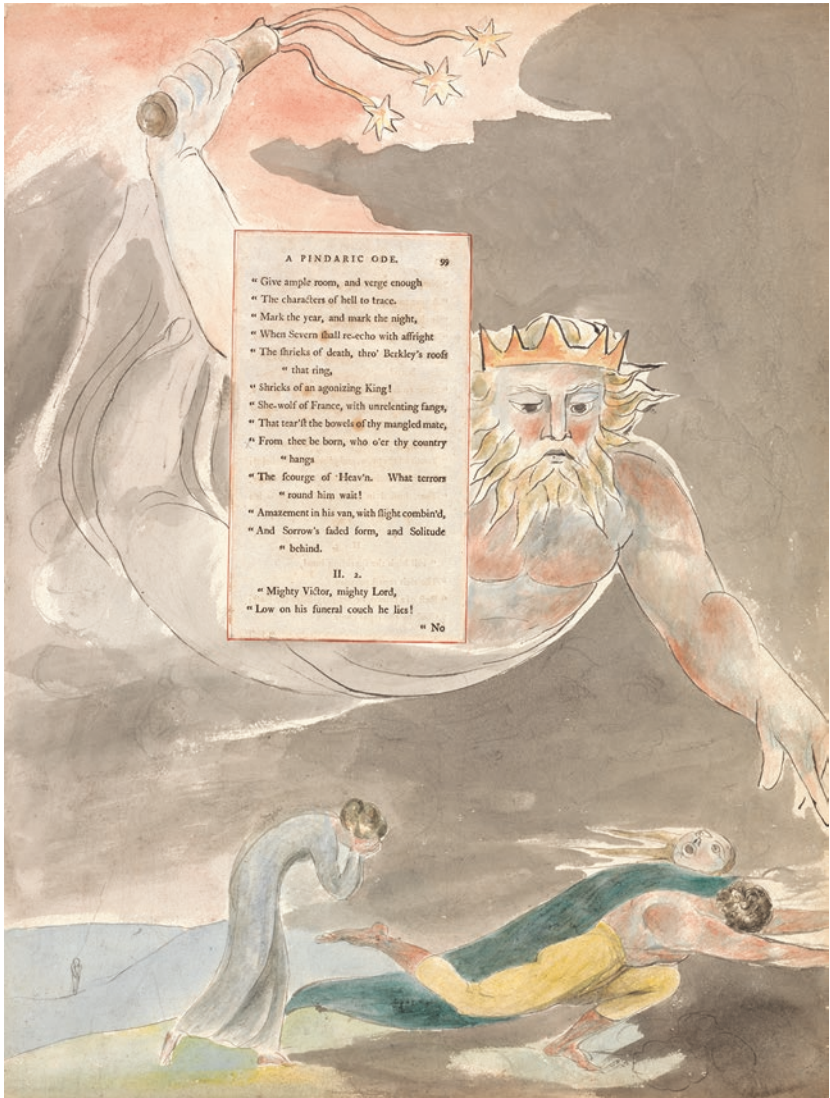 A PINDARIC ODE. 99
“ Give ample room, and verge enough
“ The characters of hell to trace.
“ Mark the year, and mark the night,
“ When Severn ſhall re-echo with affright
“ The ſhrieks of death, thro' Berkley's roofs
“ that ring,
“ Shrieks of an agonizing King!
“ She-wolf of France, with unrelenting fangs,
“ That tear'ſt the bowels of thy mangled mate,
“ From thee be born, who o'er thy country
“ hangs
“ The ſcourge of Heav'n. What terrors
“ round him wait!
“ Amazement in his van, with flight combin'd,
“ And Sorrow's faded form, and Solitude
“ behind.
II. 2.
“ Mighty Victor, mighty Lord,
“ Low on his funeral couch he lies!
“ No